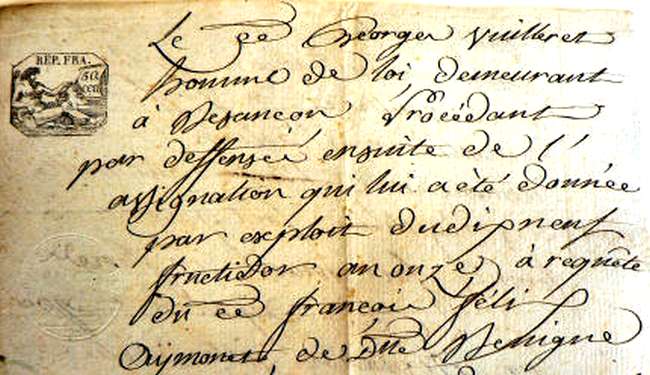 RÉP. FRA.
Le ce Georges Vuilleret
homme de loi demeurant
à Besançon Procédant
par deffense ensuite de l'
assignation qui lui a été donnée
par exploit du dixneuf
fructidor an onze, à requête
du ce françois féli
Aymonet, de Dlle Benigne